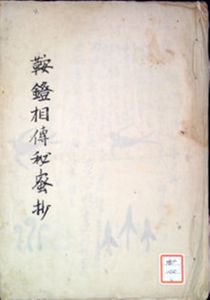 鞍鐙相傳秘蜜抄